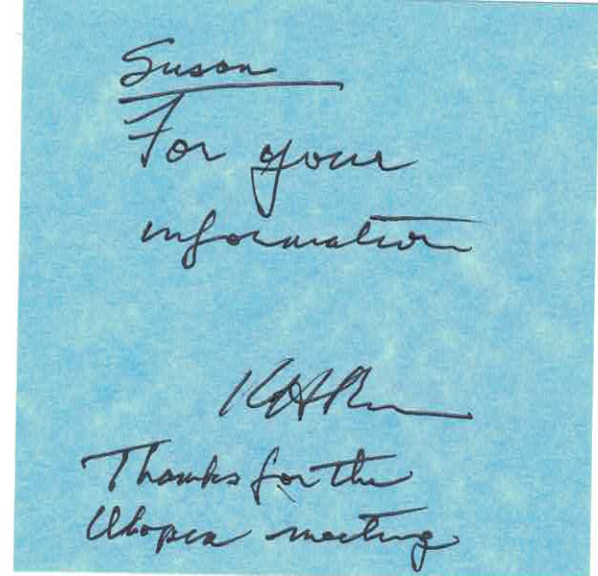 Susan
For your
information
Thanks for the
Utopia meeting